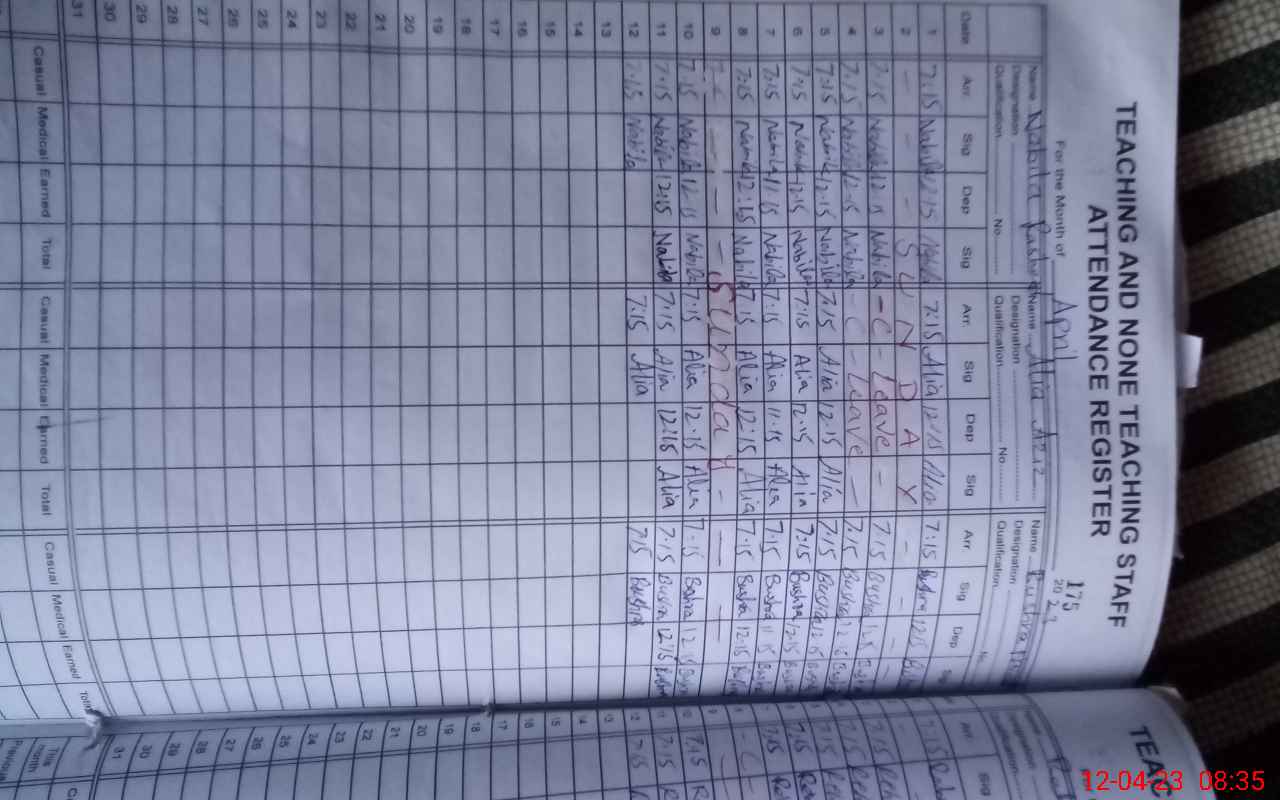 TEACHING AND NONE TEACHING STAFF
ATTENDANCE REGISTER
175
For the Month of April 2023
Name Nabila Name Alia Aziz Name Bushra
Designation Designation Designation
Qualification No. Qualification No. Qualification No.
Date Arr Sig Dep Sig Arr Sig Dep Sig Arr Sig Dep
1 7:15 Nabila 12:15 7:15 Alia 12:15 Alia 7:15 Bushra 12:15
2 - - - SUNDAY - - -
3 7:15 Nabila 12:15 Nabila - C - Leave - 7:15 Bushra
4 7:15 Nabila 12:15 Nabila - C - Leave - 7:15 Bushra 12:15
5 7:15 Nabila 12:15 Nabila 7:15 Alia 12:15 Alia 7:15 Bushra 12:15
6 7:15 Nabila 12:15 Nabila 7:15 Alia 12:15 Alia 7:15 Bushra 12:15
7 7:15 Nabila 11:15 Nabila 7:15 Alia 11:15 Alia 7:15 Bushra 11:15
8 7:15 Nabila 12:15 Nabila 7:15 Alia 12:15 Alia 7:15 Bushra 12:15
9 - - - - Sunday - - -
10 7:15 Nabila 12:15 Nabila 7:15 Alia 12:15 Alia 7:15 Bushra 12:15
11 7:15 Nabila 12:15 Nabila 7:15 Alia 12:15 Alia 7:15 Bushra 12:15
12 7:15 Nabila 7:15 Alia 7:15 Bushra
13
14
15
16
17
18
19
20
21
22
23
24
25
26
27
28
29
30
31
Casual Medical Earned Total Casual Medical Earned Total Casual Medical Earned Total
TEAC
Name
Arr Sig
1 7:15
9
10 7:15
11 7:15
12 7:15
13
14
15
16
17
18
19
20
21
22
23
24
25
26
27
28
29
30
31
This month
Previous
12-04-23 08:35